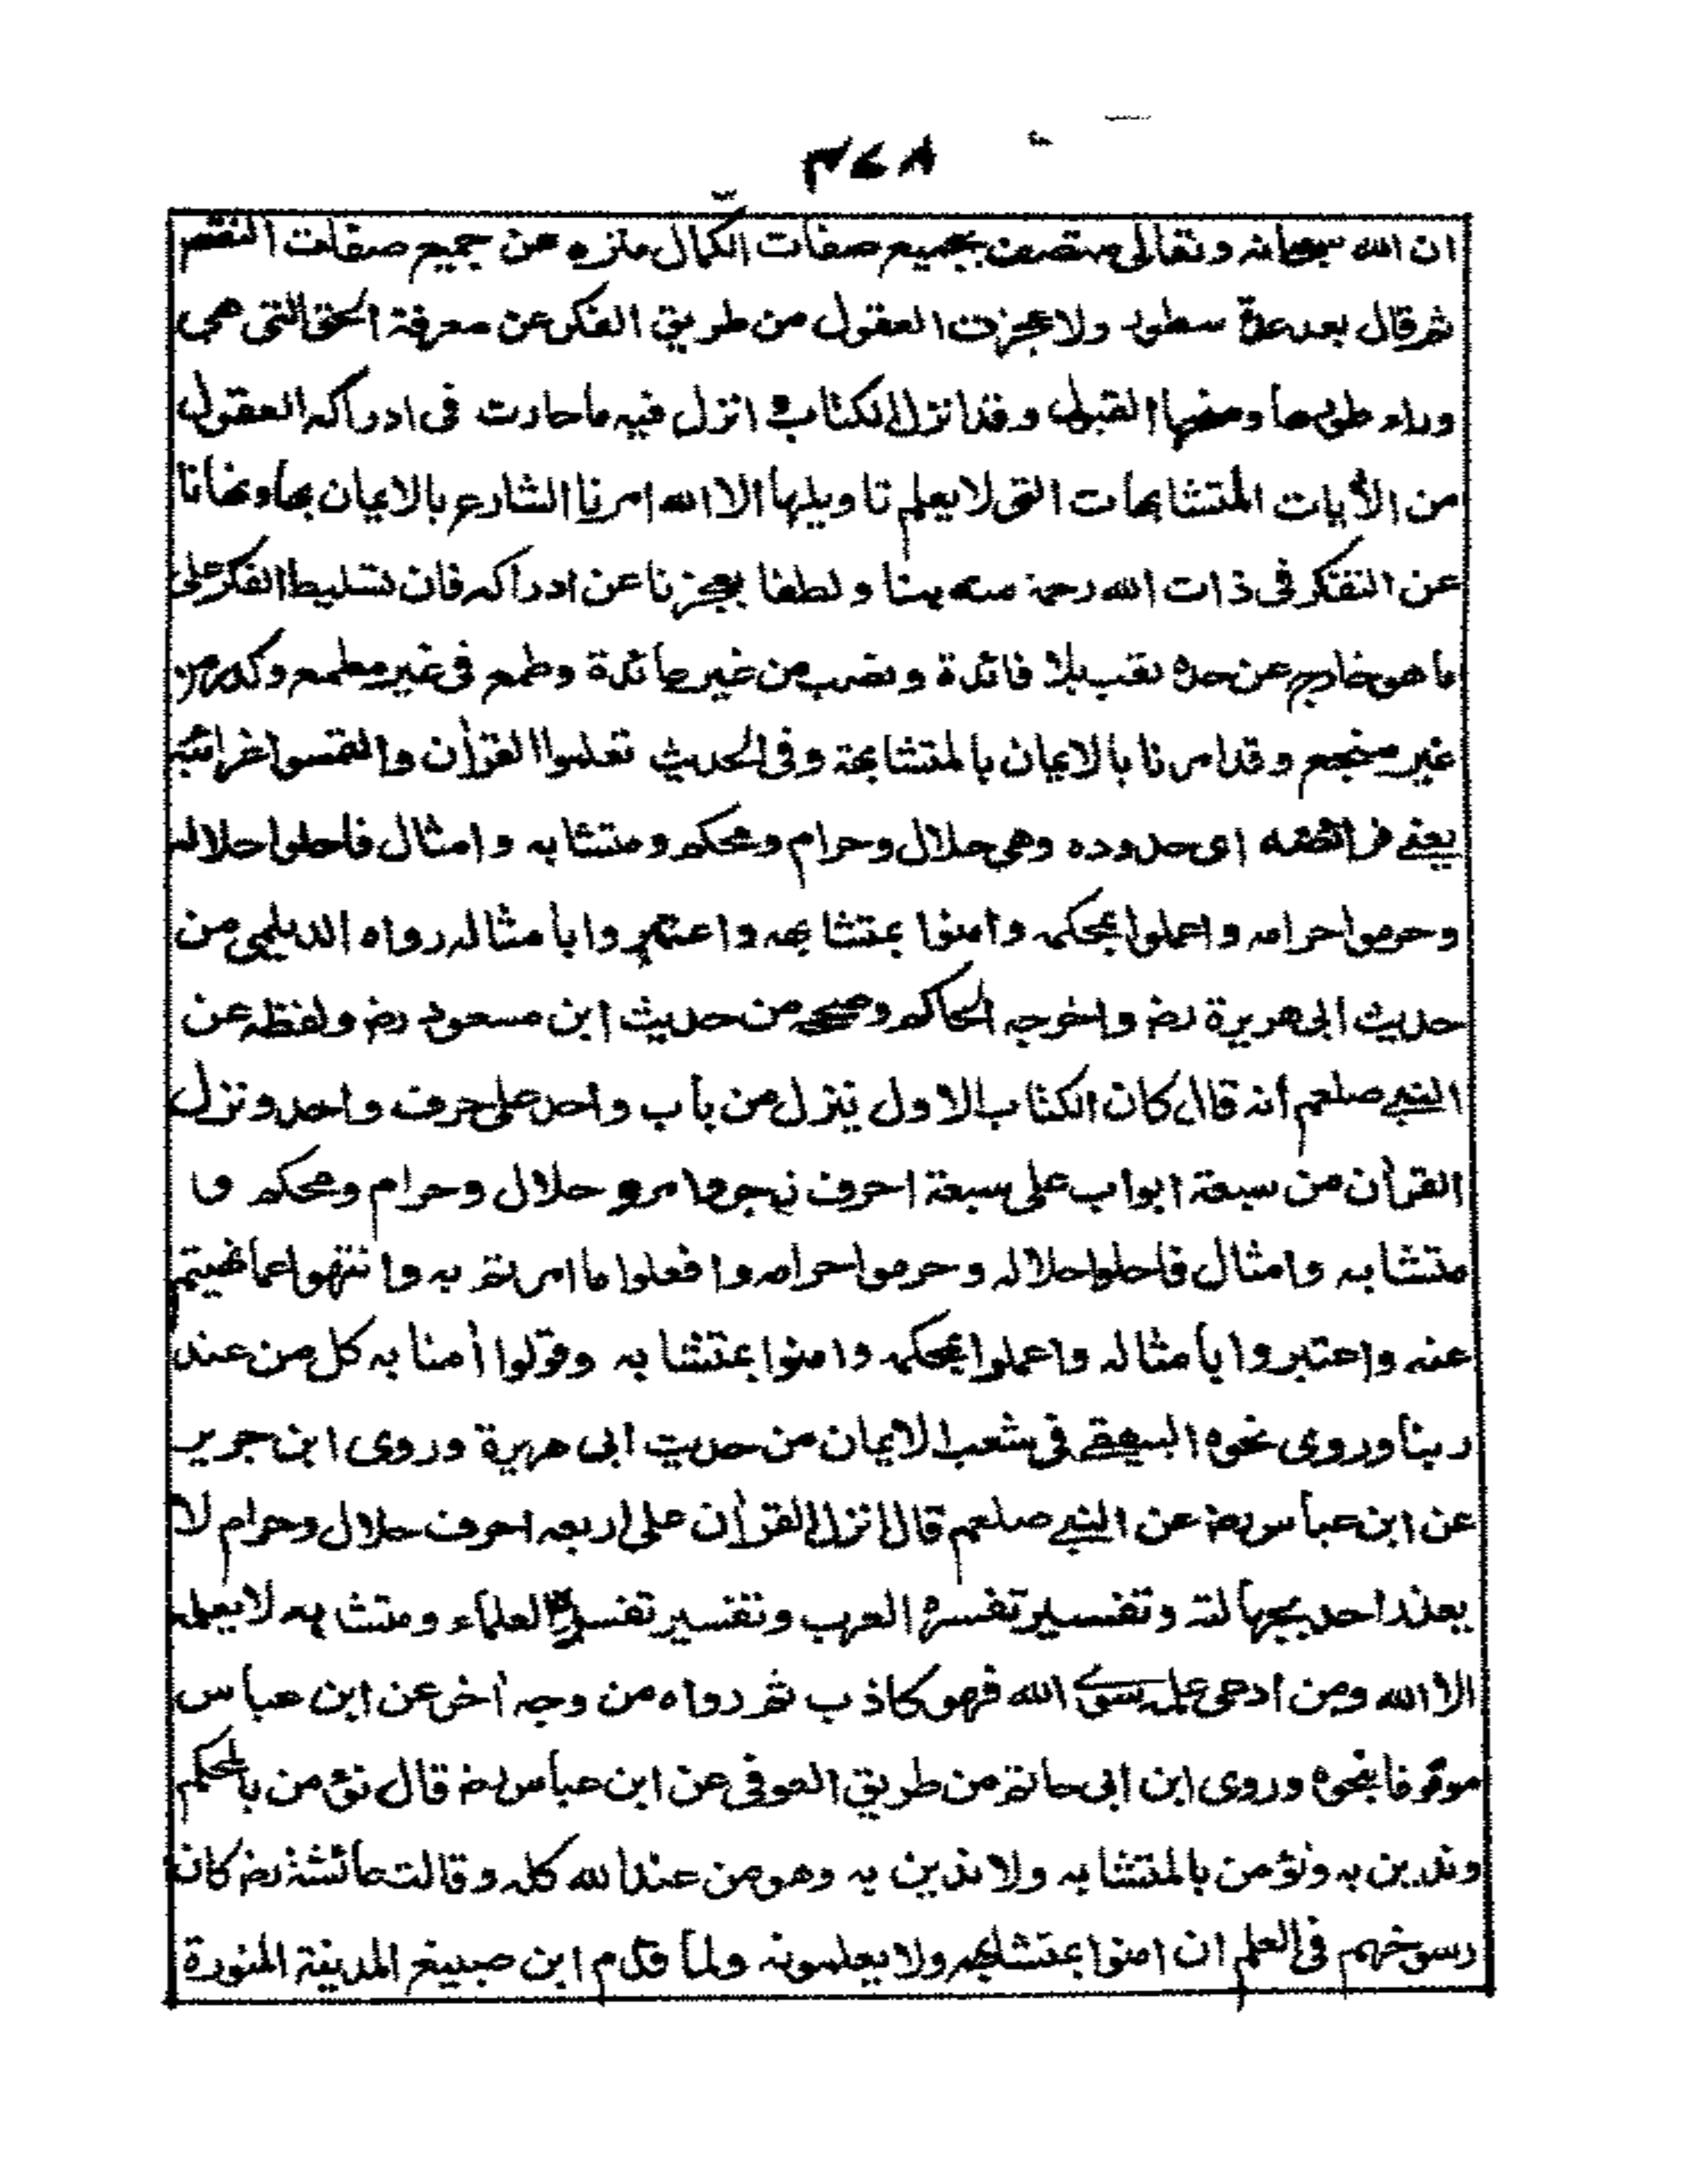 ٣٤٨
ان الله سبحانه وتعالى متصف بجميع صفات الكمال منزه عن جميع صفات النقص
ثم قال بعد عدة سطور ولا عجزت العقول من طريق الفكر عن معرفة الحق التى هى
وراء طورها ومنها القبول وقد انزل الكتاب وانزل فيه ما حارت فى ادراكه العقول
من الأيات المتشابهات التى لا يعلم تاويلها الا الله امرنا الشارع بالايمان بها ونهانا
عن التفكر فى ذات الله رحمة منه بنا ولطفا بعجزنا عن ادراكه فان تسليط الفكر على
ما هو خارج عن حده تعب بلا فائدة ونصب من غير عائدة وطمع فى غير مطمع وكد من
غير منجع وقد امرنا بالايمان بالمتشابهة وفى الحديث تعلموا القرأن والتمسوا غرائبه
يعنى فرائضه اى حدوده وهى حلال وحرام ومحكم ومتشابه وامثال فاحلوا حلاله
وحرموا حرامه واعملوا بمحكمه وامنوا بمتشابهه واعتبروا بأمثاله رواه الديلمى من
حديث ابى هريرة رضـ واخرجه الحاكم وصححه من حديث ابن مسعود رضـ ولفظه عن
النبى صلعم أنه قال كان الكتاب الاول ينزل من بأب واحد على حرف واحد ونزل
القرأن من سبعة ابواب على سبعة احرف زجر وامر وحلال وحرام ومحكم و
متشابه وامثال فاحلوا حلاله وحرموا حرامه وافعلوا ما امرتم به وانتهوا عما نهيتم
عنه واعتبروا بأمثاله واعملوا بمحكمه وامنوا بمتشابه وقولوا أمنا به كل من عند
ربنا وروى نحوه البيهقى فى شعب الايمان من حديث ابى هريرة وروى ابن جرير
عن ابن عباس رضـ عن النبى صلعم قال انزل القرأن على اربعه احرف حلال وحرام لا
يعذر احد بجهالته وتفسير تفسره العرب وتفسير تفسره العلماء ومتشابه لا يعلمه
الا الله ومن ادعى علمه سوى الله فهو كاذب ثم رواه من وجه أخر عن ابن عباس
موقوفا بنحوه وروى ابن ابى حاتم من طريق العوفى عن ابن عباس رضـ قال نؤمن بالمحكم
وندين به ونؤمن بالمتشابه ولا ندين به وهو من عند الله كله وقالت عائشة رضـ كان
رسوخهم فى العلم ان امنوا بمتشابهه ولا يعلمونه ولما قدم ابن صبيغ المدينة المنورة